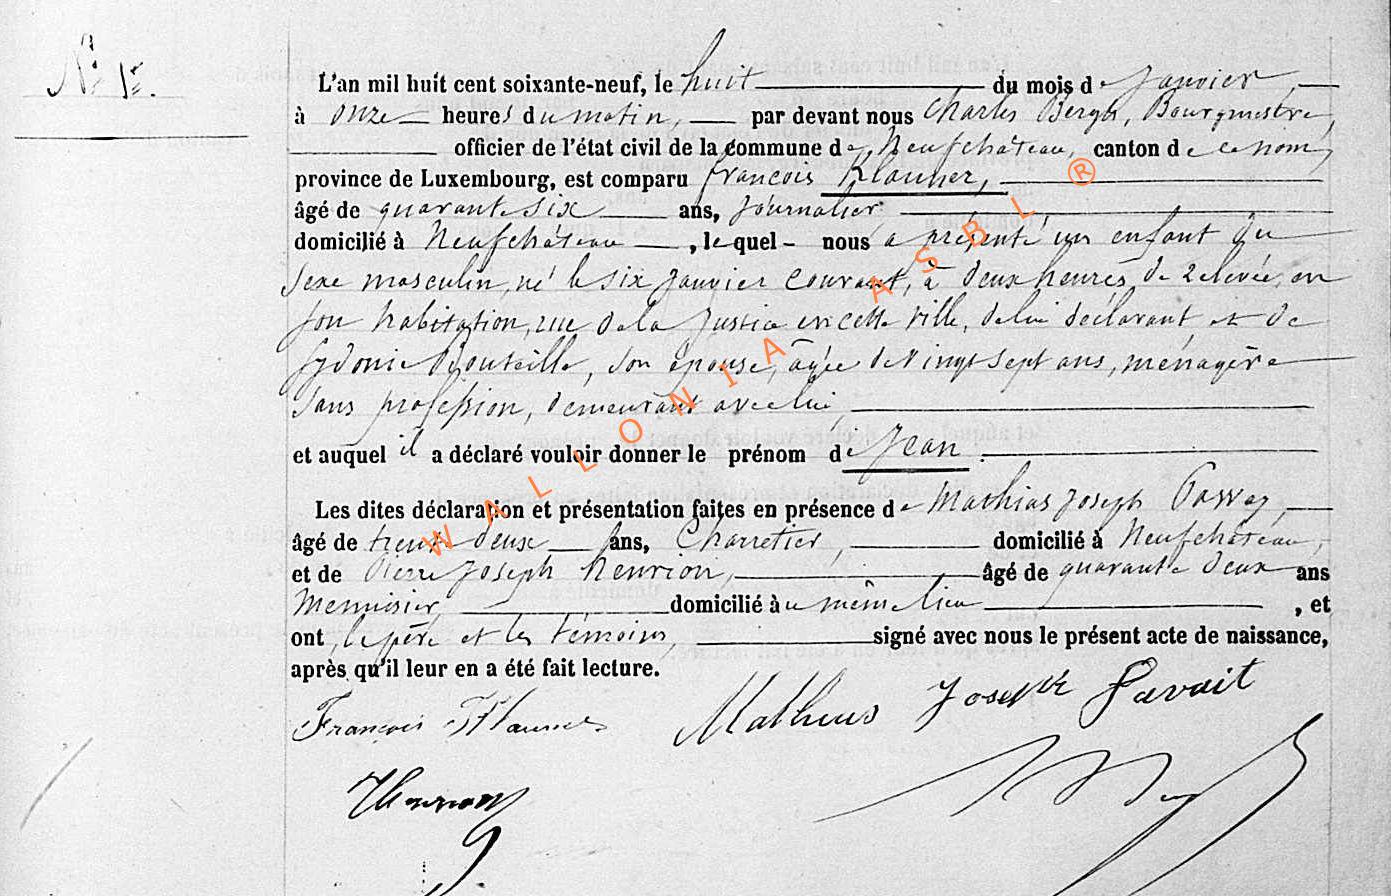 N° 1er.
L'an mil huit cent soixante-neuf, le huit du mois de Janvier,
à onze heures du matin, par devant nous Charles Bergh, Bourgmestre,
officier de l'état civil de la commune de Neufchâteau, canton de ce nom,
province de Luxembourg, est comparu françois Klauner,
âgé de quarante six ans, journalier
domicilié à Neufchâteau, lequel nous a présenté un enfant du
sexe masculin, né le six janvier courant, à deux heures de relevée, en
son habitation, rue de la justice en cette ville, de lui déclarant et de
sydonie Bouteille, son épouse, âgée de vingt sept ans, ménagère
sans profession, demeurant avec lui,
et auquel il a déclaré vouloir donner le prénom de Jean.
Les dites déclaration et présentation faites en présence de Mathias joseph
âgé de trente deux ans, Charretier, domicilié à Neufchâteau,
et de Pierre joseph henrion, âgé de quarante deux ans
Menuisier, domicilié au même lieu, et
ont, le père et les témoins, signé avec nous le présent acte de naissance,
après qu'il leur en a été fait lecture.
François Klauner Matheus Joseph Pavait
Henrion
WALLONIA ASBL ®